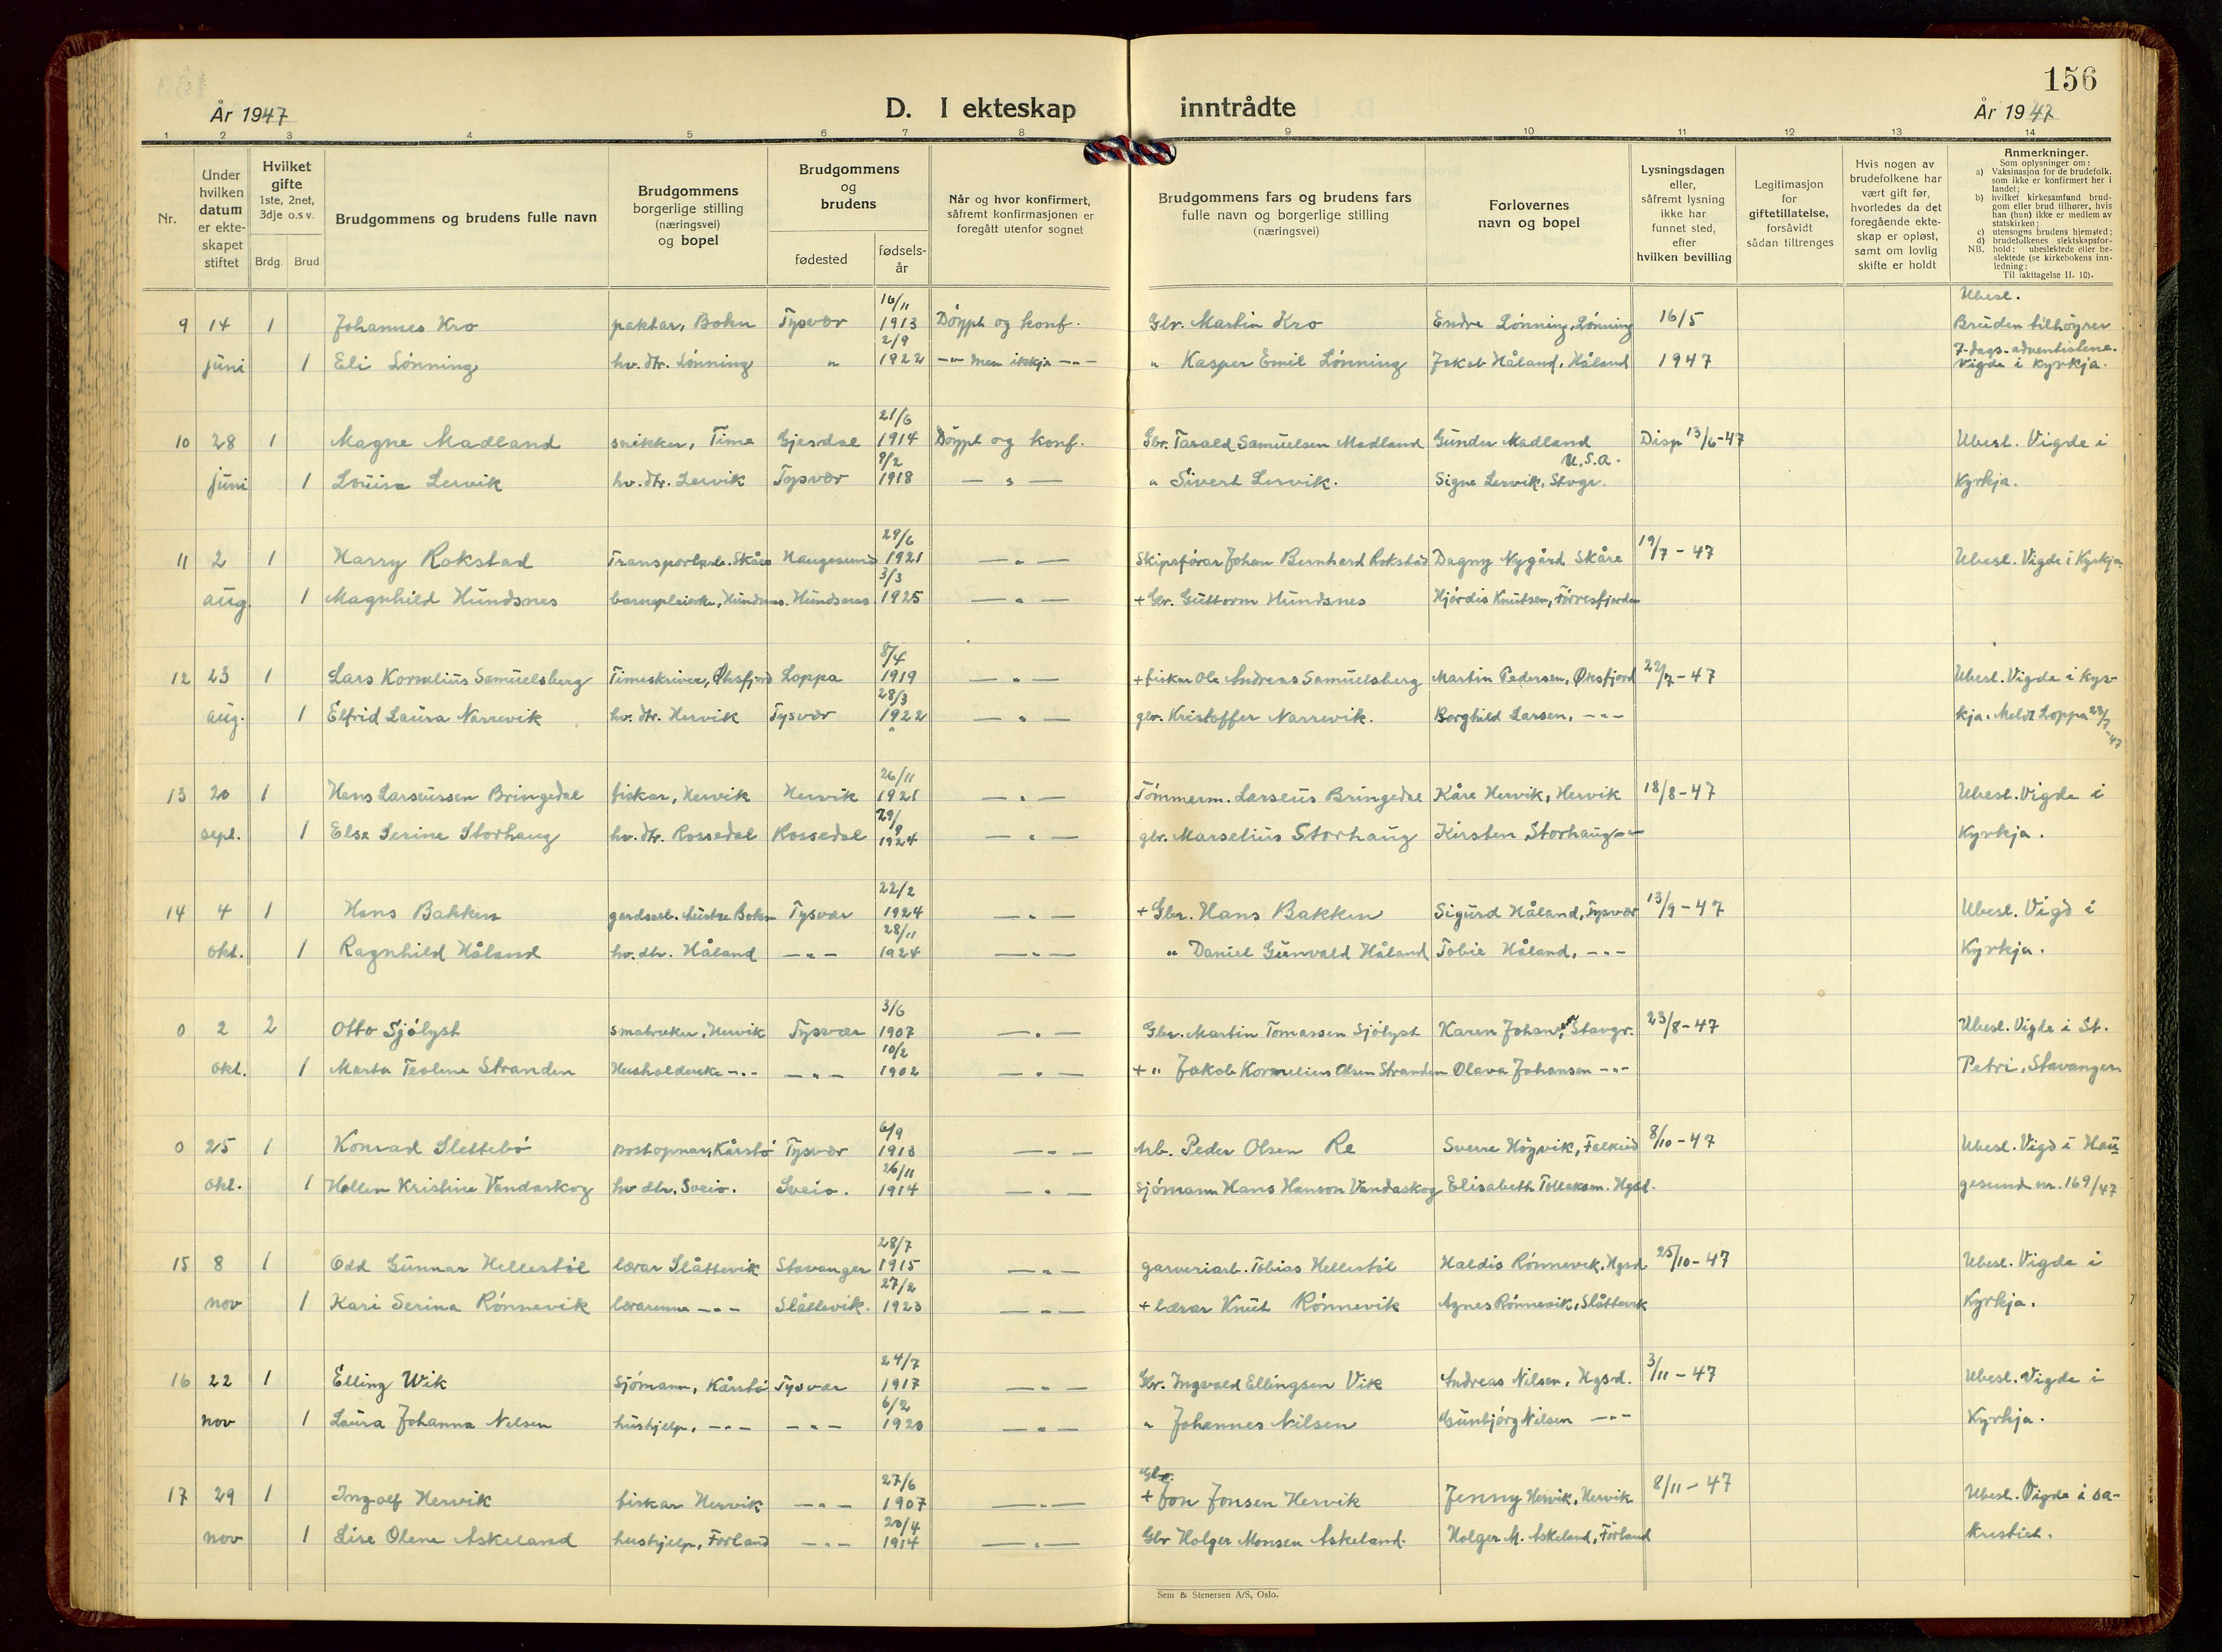 156
År 1947 D. I ekteskap inntrådte År 1947
1 2 3 4 5 6 7 8 9 10 11 12 13 14
Nr.
Under hvilken datum er ekte-skapet stiftet
Hvilket gifte 1ste, 2net, 3dje o.s v.
Brdg. Brud
Brudgommens og brudens fulle navn
Brudgommens borgerlige stilling (næringsvei) og bopel
Brudgommens og brudens
fødested fødsels-år
Når og hvor konfirmert, såfremt konfirmasjonen er foregått utenfor sognet
Brudgommens fars og brudens fars fulle navn og borgerlige stilling (næringsvei)
Forlovernes navn og bopel
Lysningsdagen eller, såfremt lysning ikke har funnet sted, efter hvilken bevilling
Legitimasjon for giftetillatelse, forsåvidt sådan tiltrenges
Hvis nogen av brudefolkene har vært gift før, hvorledes da det foregående ekte-skap er opløst, samt om lovlig skifte er holdt
Anmerkninger.
Som oplysninger om:
a) Vaksinasjon for de brudefolk, som ikke er konfirmert her i landet;
b) hvilket kirkesamfund brud-gom eller brud tilhører, hvis han (hun) ikke er medlem av statskirken;
c) utensogns brudens hjemsted;
d) brudefolkenes slektskapsfor-hold: ubeslektede eller be-slektede (se kirkebokens inn-ledning:
NB.
Til iakttagelse II. 10).
9 14 1 Johannes Kro paktar, Bokn Tysvær 16/11 1913 Döypt og konf. Gbr. Martin Kro Endre Lönning, Lönning 16/5 Ubesl. Bruden tilhöyrer
juni 1 Eli Lönning hv. dtr. Lönning " 2/9 1922 -"- men ikkje -"- " Kasper Emil Lönning Jakob Håland, Håland 1947 7-dags-adventistene. Vigde i kyrkja.
10 28 1 Magne Madland snikker, Time Gjesdal 21/6 1914 Döypt og konf. Gbr. Tarald Samuelsen Madland Gunder Madland U.S.A. Disp 13/6-47 Ubesl. Vigde i
juni 1 Louise Lervik hv. dtr. Lervik Tysvær 9/2 1918 -"- " Sivert Lervik. Signe Lervik, Stvgr. Kyrkja.
11 2 1 Harry Rokstad Transportarb. Skåre Haugesund 29/6 1921 -"- Skipsförar Johan Bernhard Rokstad Dagny Nygård Skåre 19/7-47 Ubesl. Vigde i Kyrkja
aug. 1 Magnhild Hundsnes barnepleierke, Hundsnes. Hundsnes 3/3 1925 -"- + Gbr. Guttorm Hundsnes Hjördis Knutsen, Förresfjorden
12 23 1 Lars Kornelius Samuelsberg Timeskriver, Øksfjord Loppa 8/4 1919 -"- + fisker Ole Andreas Samuelsberg Martin Pedersen, Øksfjord 22/7-47 Ubesl. Vigde i kyr-
aug. 1 Elfrid Laura Narrevik hv. dtr. Hervik Tysvær 28/3 1922 -"- gbr. Kristoffer Narrevik. Borghild Larsen, -"- kja. Meldt Loppa 23/7-47
13 20 1 Hans Larseussen Bringedal fiskar, Hervik Hervik 26/11 1921 -"- Tömmerm. Larseus Bringedal Kåre Hervik, Hervik 18/8-47 Ubesl. Vigde i
sept. 1 Else Serine Storhaug hv. dtr. Rossedal Rossedal 29/9 1924 -"- gbr. Marselius Storhaug Kirsten Storhaug -"- Kyrkja.
14 4 1 Hans Bakken gardsarb. Austre Bokn Tysvær 22/2 1924 -"- + Gbr. Hans Bakken Sigurd Håland, Tysvær 13/9-47 Ubesl. Vigd i
okt. 1 Ragnhild Håland hv. dtr. Håland -"- 28/11 1924 -"- " Daniel Gunvald Håland Tobie Håland, -"- Kyrkja.
0 2 2 Otto Sjölyst småbruker, Hervik Tysvær 3/6 1907 -"- Gbr. Martin Tomassen Sjölyst Karen Johansen, Stavgr. 23/8-47 Ubesl. Vigde i St.
okt. 1 Marta Teoline Stranden Husholderske -"- -"- 10/2 1902 -"- + " Jakob Kornelius Olsen Stranden Olava Johansen -"- Petri, Stavanger
0 25 1 Konrad Slettebö postopnar, Kårstö Tysvær 6/9 1913 -"- Arb. Peder Olsen Re Sverre Högvik, Falkeid 8/10-47 Ubesl. Vigd i Hau-
okt. 1 Hellen Kristine Vandaskog hv dtr, Sveio. Sveio. 26/11 1914 -"- Sjömann Hans Hanson Vandaskog Elisabeth Tollaksen. Hgsd. gesund nr. 169/47
15 8 1 Odd Gunnar Hellestöl lærar Slåttevik Stavanger 28/7 1915 -"- garveriarb. Tobias Hellestöl Haldis Rönnevik, Hgsd 25/10-47 Ubesl. Vigde i
nov 1 Kari Serina Rönnevik lærarinne -"- Slåttevik. 27/2 1923 -"- + lærar Knut Rönnevik Agnes Rönnevik, Slåttevik Kyrkja.
16 22 1 Elling Wik Sjömann, Kårstö Tysvær 24/7 1917 -"- Gbr. Ingvald Ellingsen Vik Andreas Nilsen, Hgsd. 3/11-47 Ubesl. Vigde i
nov 1 Laura Johanna Nilsen hushjelp, -"- -"- 6/2 1920 -"- " Johannes Nilsen Gunbjörg Nilsen -"- Kyrkja.
17 29 1 Ingolf Hervik fiskar Hervik -"- 27/6 1907 -"- Gbr. + Jon Jonsen Hervik Jenny Hervik, Hervik 8/11-47 Ubesl. Vigde i sa-
nov 1 Lise Olene Askeland hushjelp, Förland -"- 20/4 1914 -"- Gbr Holger Monsen Askeland. Holger M. Askeland, Förland kristiet.
Sem & Stenersen A/S, Oslo.